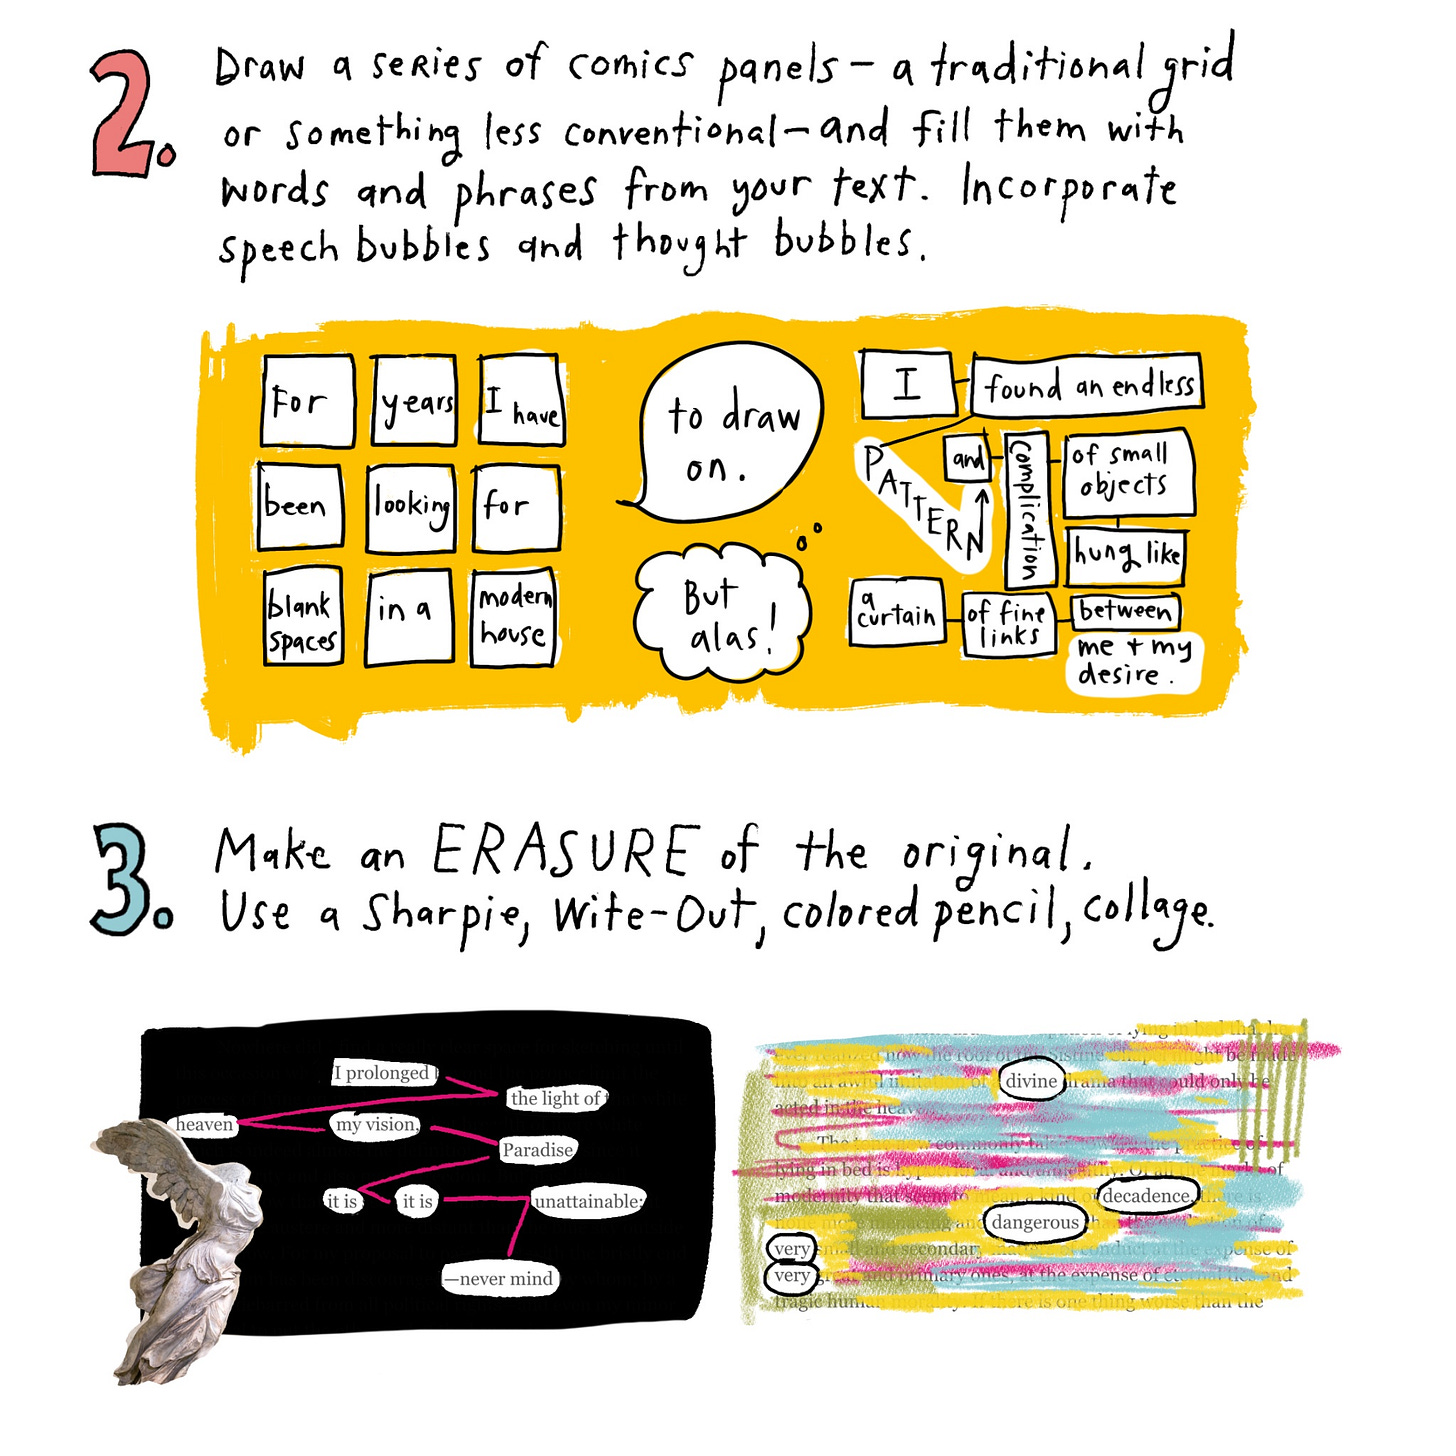 2.
Draw a series of comics panels – a traditional grid
or something less conventional – and fill them with
words and phrases from your text. Incorporate
speech bubbles and thought bubbles.
For
years
I have
been
looking
for
blank
spaces
in a
modern
house
to draw
on.
But
alas!
I
found an endless
PATTERN
and
complication
of small
objects
hung like
a
curtain
of fine
links
between
me + my
desire.
3.
Make an ERASURE of the original.
Use a Sharpie, Wite-Out, colored pencil, collage.
I prolonged
the light of
heaven
my vision,
Paradise
it is
it is
unattainable:
—never mind
lying in bed that he
ever realized now the roof of the Sistine might be made
into an awful imitation of divine drama that could only be
acted in the heav
The commonly the practice of
lying in bed is and Of all of
modernity that seem to mean a kind of decadence, there is
none more menacing and dangerous than of
very small and secondary matters of conduct at the expense of
very great and primary ones, at the expense of and
tragic human morality. If there is one thing worse than the